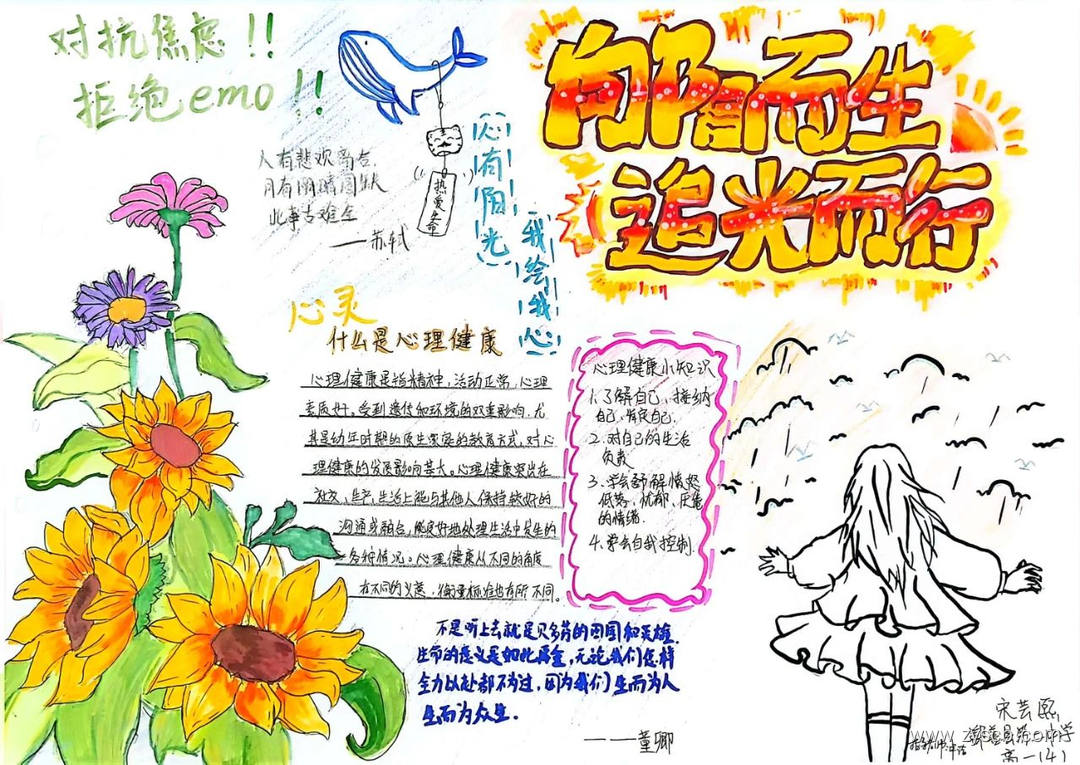 对抗焦虑!!
拒绝emo!!
人有悲欢离合,
月有阴晴圆缺
此事古难全
——苏轼
热爱生命
心有阳光
我绘我心
向阳而生
追光而行
心灵
什么是心理健康
心理健康是指精神、活动正常、心理
素质好。受到遗传和环境的双重影响,尤
其是幼年时期的原生家庭的教育方式,对心
理健康的发展影响甚大。心理健康突出在
社交、生产、生活上能与其他人保持较好的
沟通或融合,能良好地处理生活中发生的
各种情况。心理健康从不同的角度
有不同的义意,衡量标准也有所不同。
心理健康小知识
1.了解自己,接纳
自己,肯定自己.
2.对自己的生活
负责
3.学会疏解愤怒
低落、忧郁、
的情绪.
4.学会自我控制.
不是听上去就是贝多芬的田园和英雄.
生命的意义是如此厚重,无论我们怎样
全力以赴都不为过,因为我们生而为人
生而为众生.
———董卿
宋芸熙
鄯善县第二中学
高一(4)